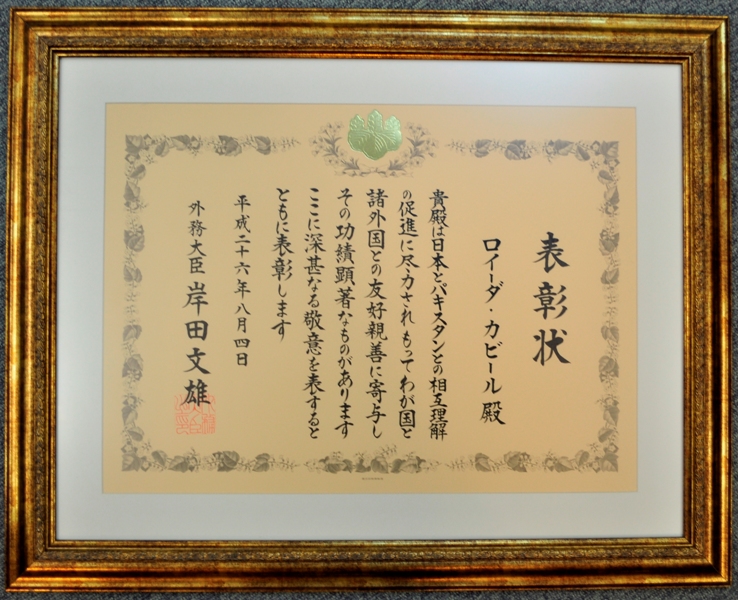 表彰状
ロイーダ・カビール 殿
貴殿は日本とパキスタンとの相互理解
の促進に尽力されもってわが国と
諸外国との友好親善に寄与し
その功績顕著なものがあります
ここに深甚なる敬意を表すると
ともに表彰します
平成二十六年八月四日
外務大臣 岸田文雄